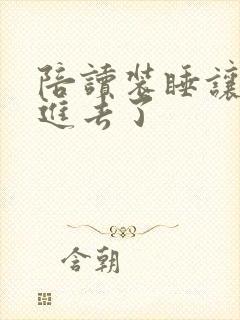 陪讀裝睡讓
進去了
含朝